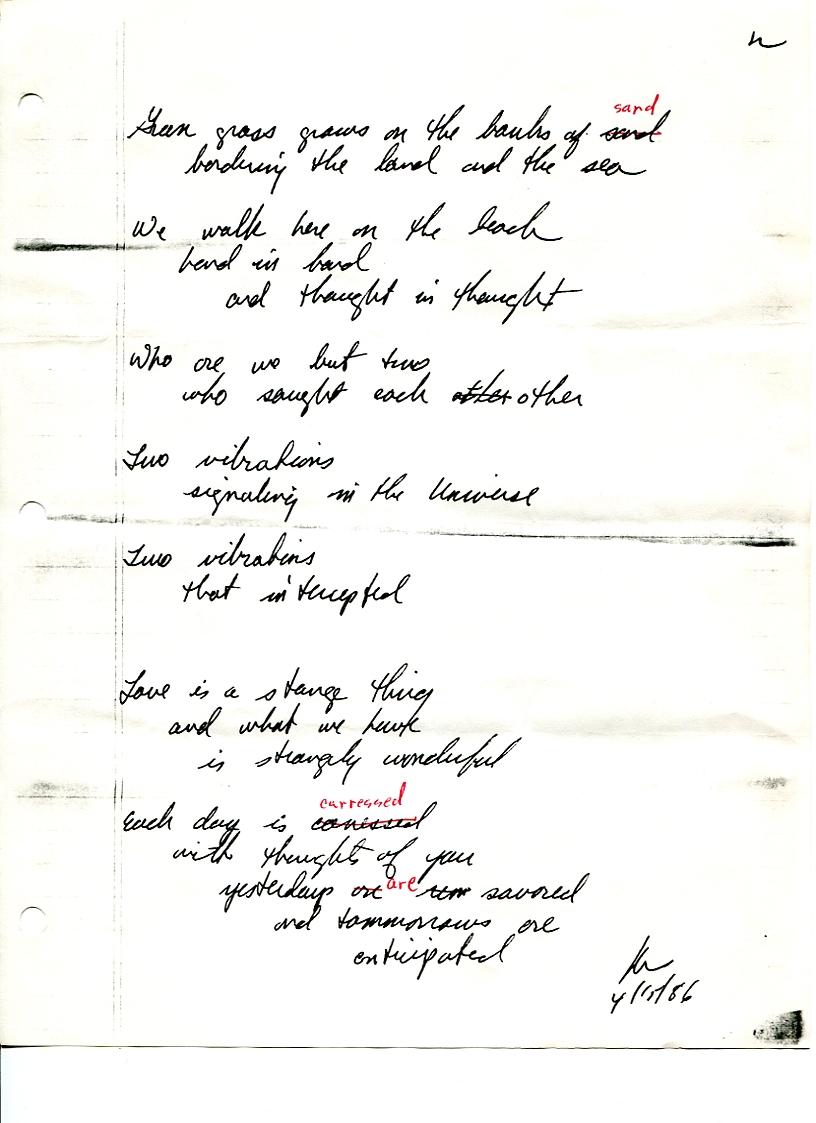 sand
Green grass grows on the banks of sand
bordering the land and the sea
We walk here on the beach
hand in hand
and thought in thought
Who are we but two
who sought each other other
Two vibrations
signaling in the Universe
Two vibrations
that intercepted
Love is a stange thing
and what we have
is strangely wonderful
carressed
Each day is caressed
with thoughts of you
yesterdays are are savored
and tommorrows are
anticipated
86